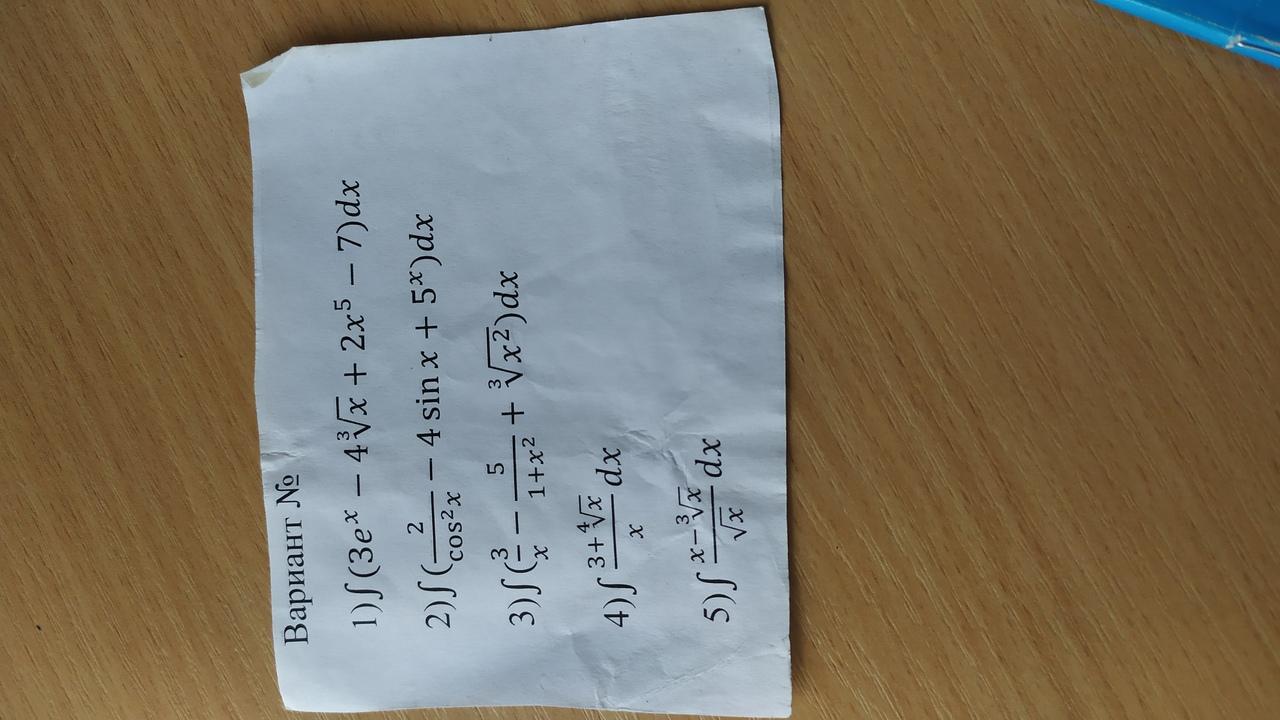 Вариант №
1)∫(3eˣ − 4∛x + 2x⁵ − 7)dx
2)∫(2/cos²x − 4 sin x + 5ˣ)dx
3)∫(3/x − 5/(1+x²) + ∛x²)dx
4)∫ (3+∜x)/x dx
5)∫ (x−∛x)/√x dx